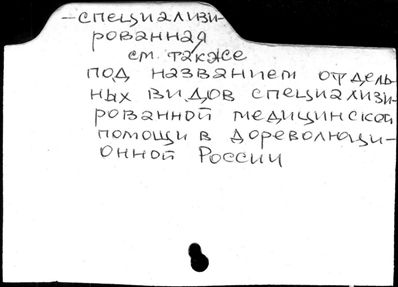 –специализи-
рованная
см. также
под названием отдель-
ных видов специализи-
рованной медицинской
помощи в дореволюци-
онной России